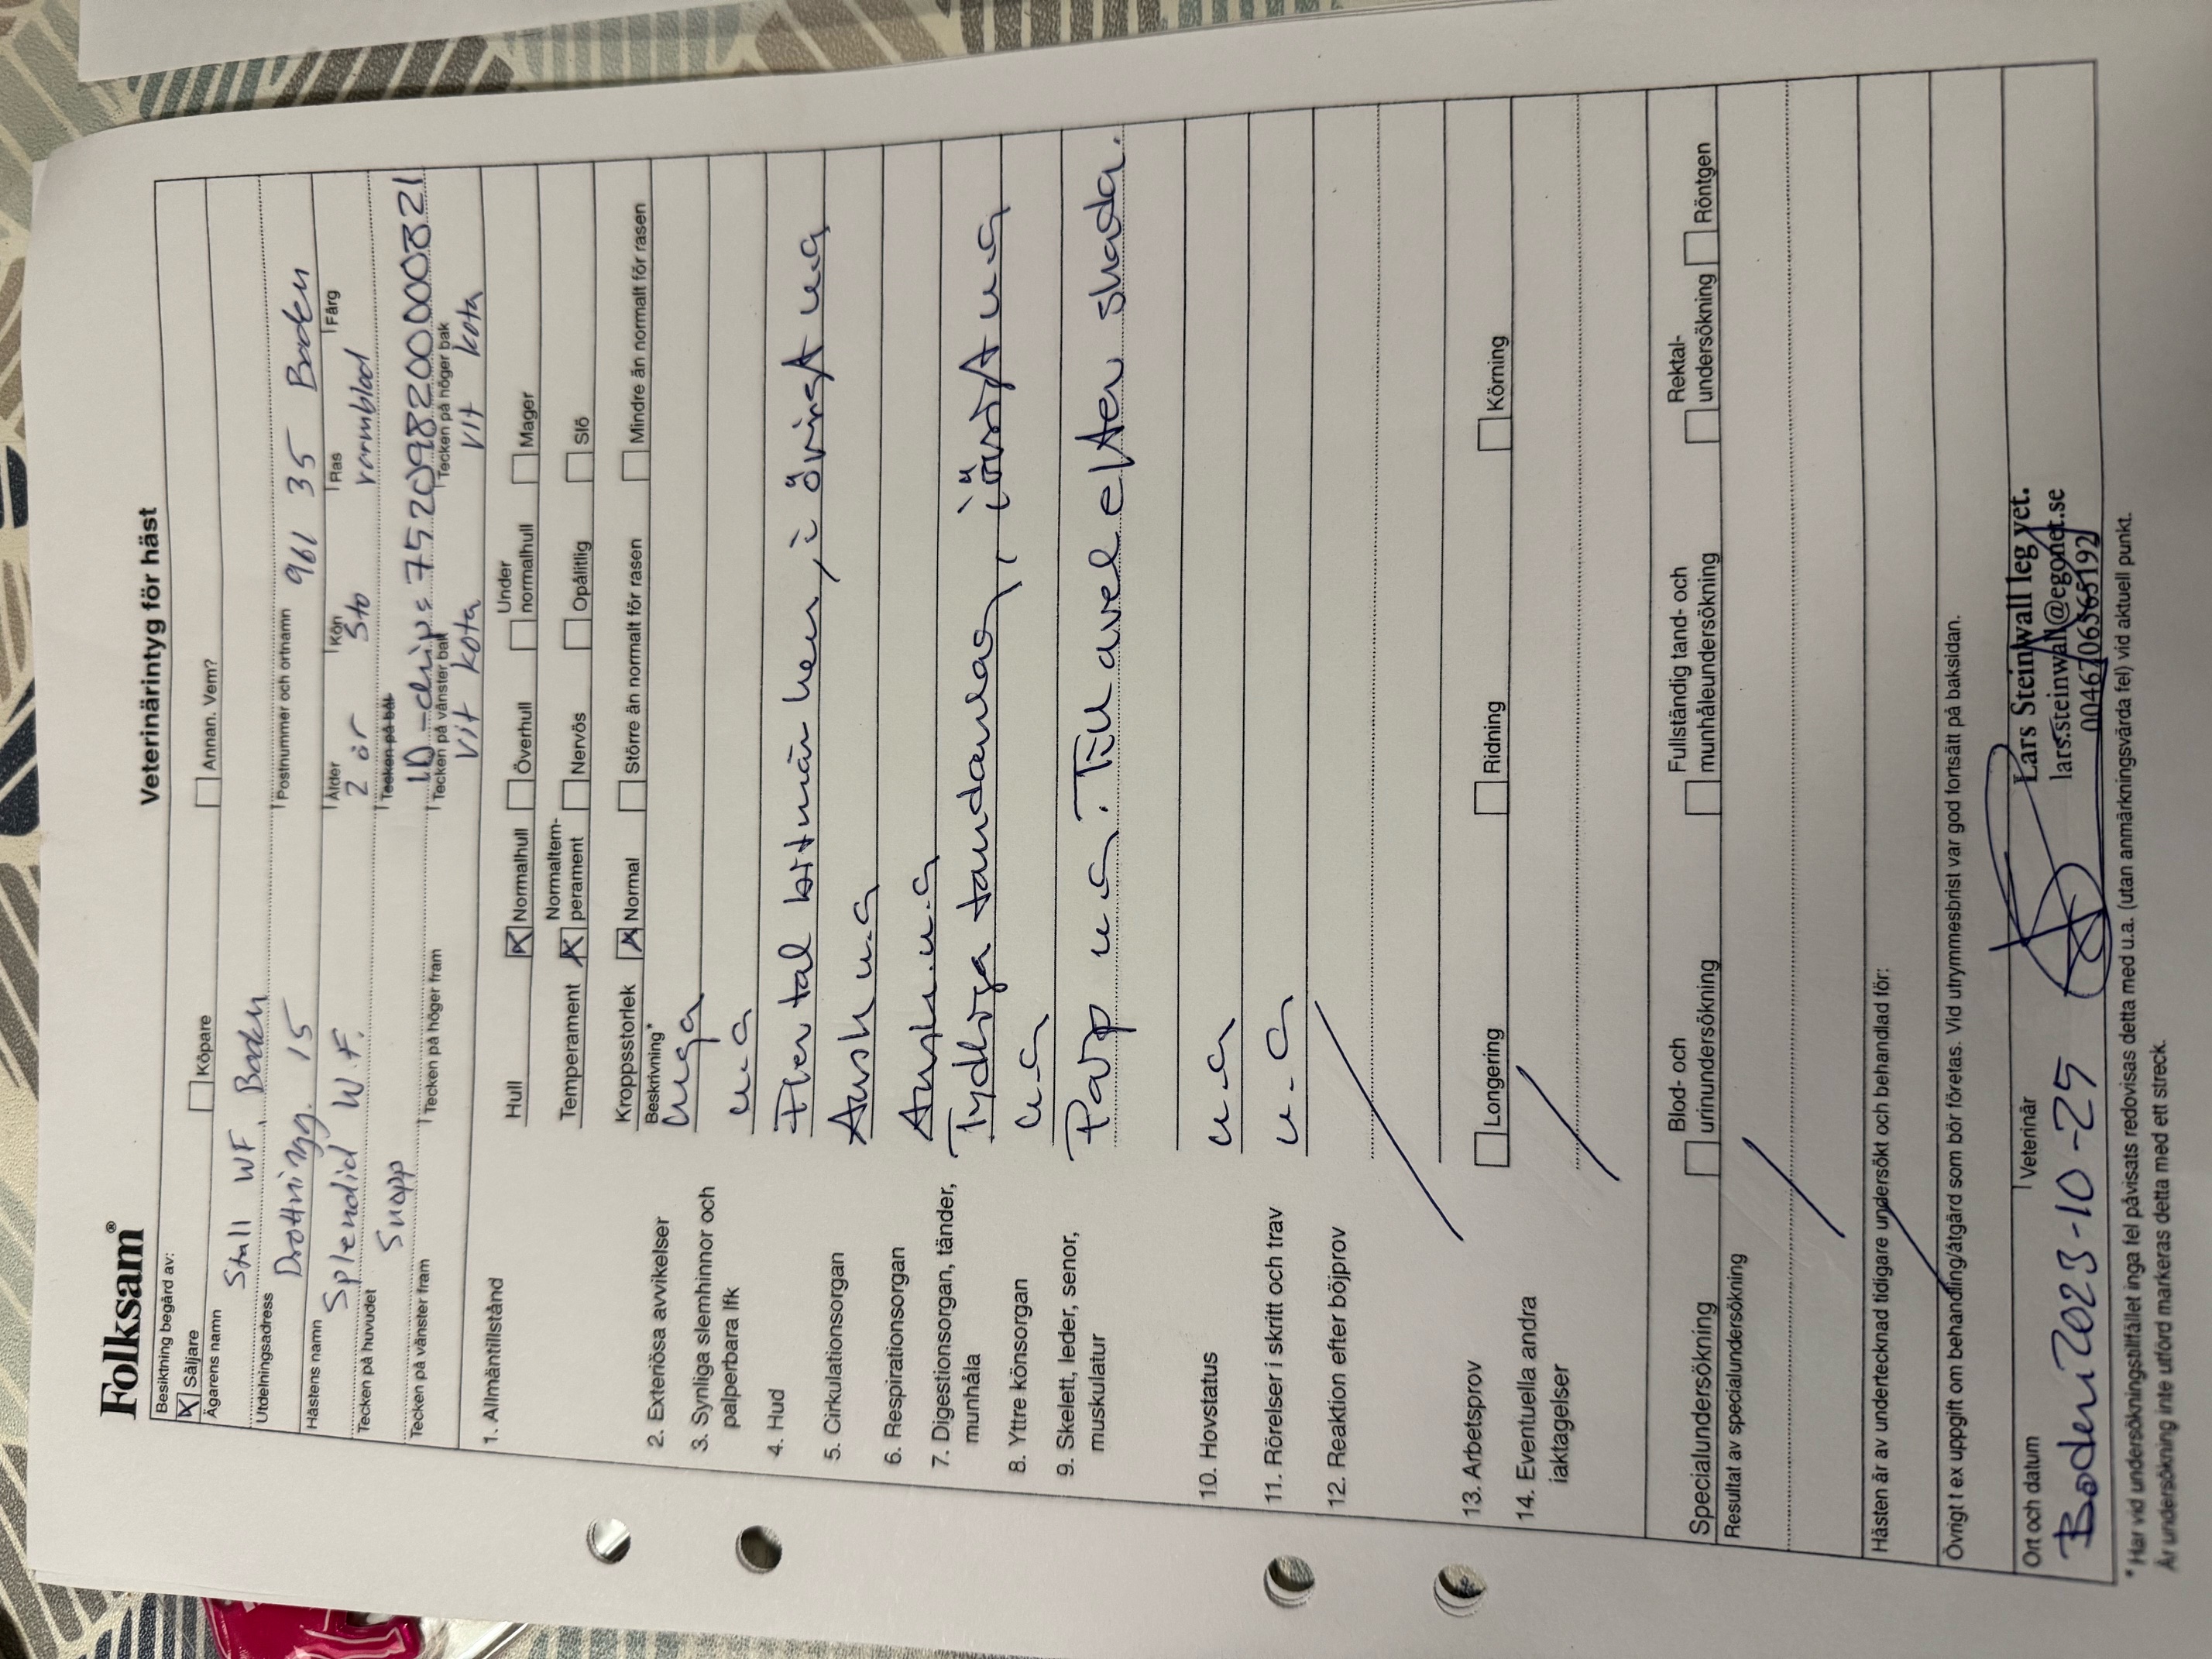 Folksam®
Veterinärintyg för häst
Besiktning begärd av:
☒ Säljare ☐ Köpare ☐ Annan. Vem?
Ägarens namn
Stall WF, Boden
Utdelningsadress Postnummer och ortnamn
Drottningg. 15 961 35 Boden
Hästens namn Ålder Kön Ras Färg
Splendid W.F. 2 år Sto varmblod
Tecken på huvudet Tecken på bål
Snopp ID-chip: 752098200000821
Tecken på vänster fram Tecken på höger fram Tecken på vänster bak Tecken på höger bak
Vit kota Vit kota
1. Allmäntillstånd
Hull ☒ Normalhull ☐ Överhull ☐ Under normalhull ☐ Mager
Temperament ☒ Normaltemperament ☐ Nervös ☐ Opålitlig ☐ Slö
Kroppsstorlek ☒ Normal ☐ Större än normalt för rasen ☐ Mindre än normalt för rasen
Beskrivning*
2. Exteriösa avvikelser
3. Synliga slemhinnor och palperbara lfk u.a
4. Hud Flertal bitmärken, i övrigt ua
5. Cirkulationsorgan Ausk u.a
6. Respirationsorgan Ausk. u.a
7. Digestionsorgan, tänder, munhåla Tydliga, i övrigt ua
8. Yttre könsorgan u a
9. Skelett, leder, senor, muskulatur Palp u a. Till avel efter skada.
10. Hovstatus u a
11. Rörelser i skritt och trav u.a
12. Reaktion efter böjprov
13. Arbetsprov ☐ Longering ☐ Ridning ☐ Körning
14. Eventuella andra iakttagelser
Specialundersökning ☐ Blod- och urinundersökning ☐ Fullständig tand- och munhåleundersökning ☐ Rektalundersökning ☐ Röntgen
Resultat av specialundersökning
Hästen är av undertecknad tidigare undersökt och behandlad för:
Övrigt t ex uppgift om behandling/åtgärd som bör företas. Vid utrymmesbrist var god fortsätt på baksidan.
Ort och datum Veterinär
Boden 2023-10-25
Lars Steinwall leg vet.
lars.steinwall@egonet.se
0046706565192
* Har vid undersökningstillfället inga fel påvisats redovisas detta med u.a. (utan anmärkningsvärda fel) vid aktuell punkt.
Är undersökning inte utförd markeras detta med ett streck.